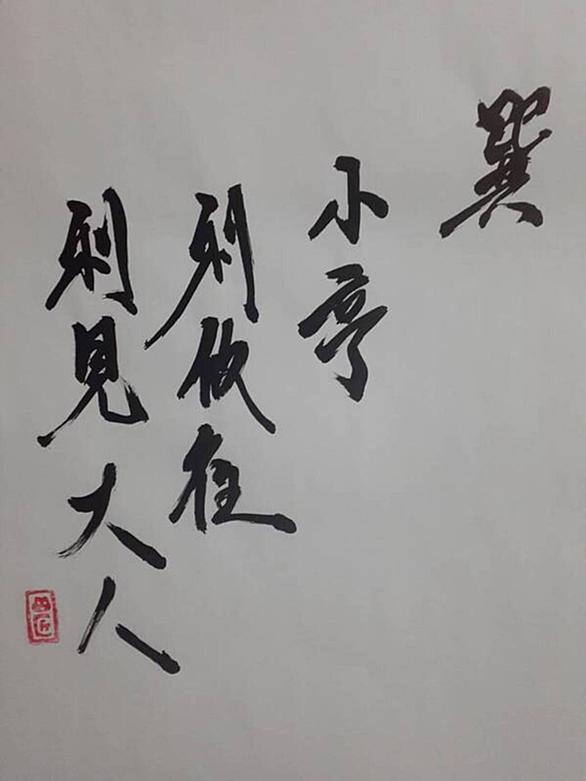 巽
小亨
利攸往
利見大人